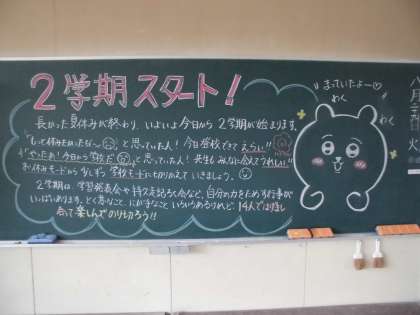 2学期スタート!
長かった夏休みが終わり、いよいよ今日から2学期が始まります。
"もっと休みたかったな〜"と思っていた人!今日登校できてえらい!!
"やったあ!今日から学校だ"と思っていた人!先生もみんなに会えてうれしい!!
お休みモードから少しずつ学校モードに切りかえていきましょう。
2学期は、学習発表会や持久走記ろく会など、自分の力をためす行事が
いっぱいあります。とく意なこと、にがてなこといろいろあるけれど、14人ではげまし
合って楽しんでのりきろう!!
まっていたよー♡
わく
わく
月
火